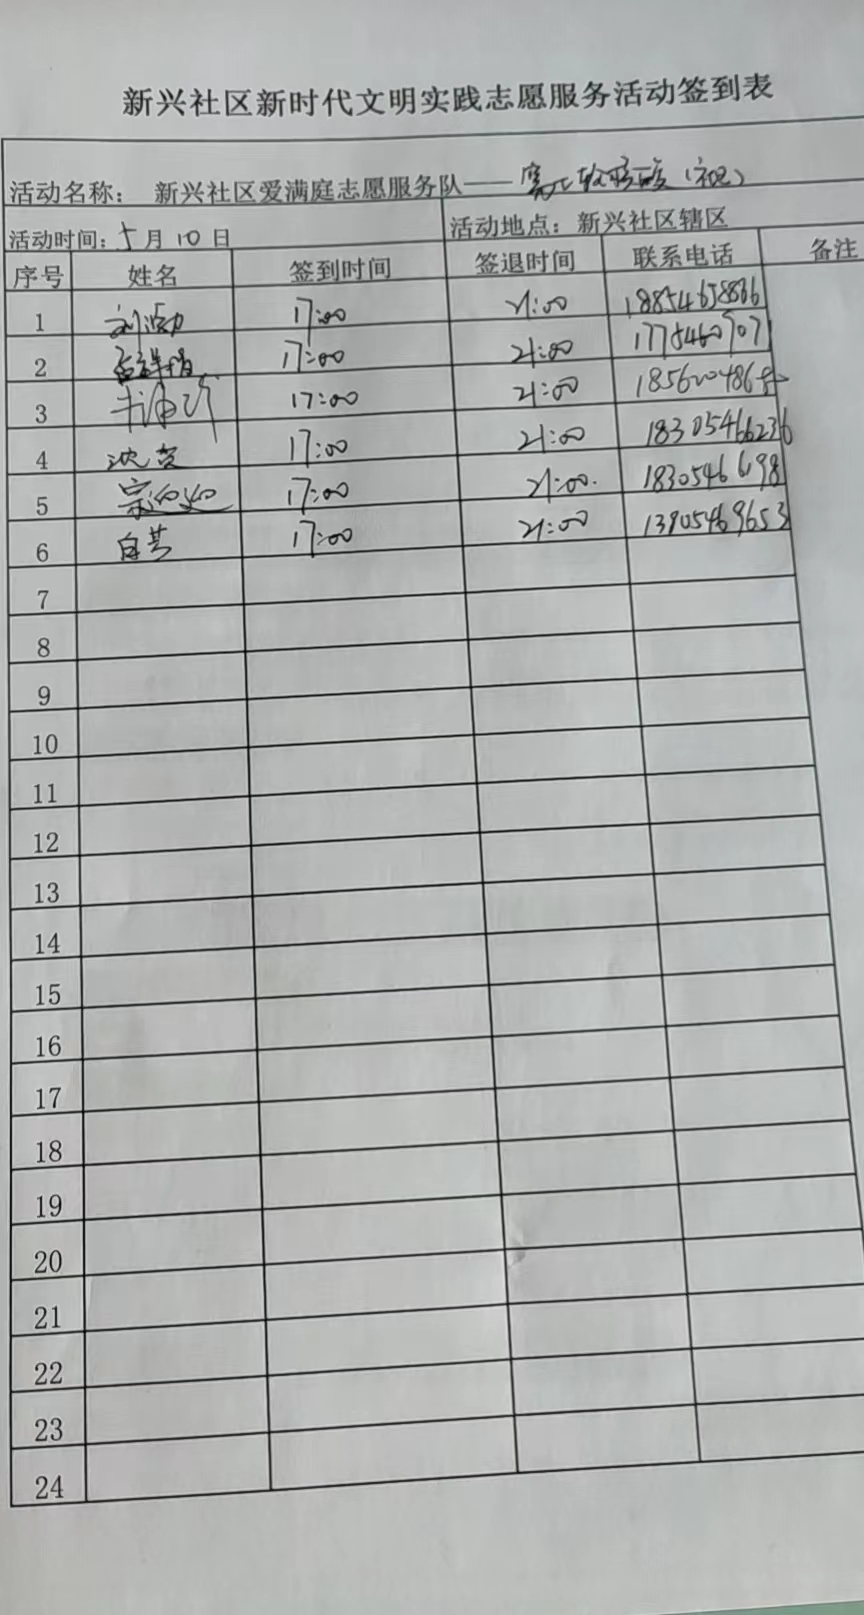 新兴社区新时代文明实践志愿服务活动签到表
活动名称： 新兴社区爱满庭志愿服务队——
活动时间：5月10日 活动地点：新兴社区辖区
序号 姓名 签到时间 签退时间 联系电话 备注
1 17:00 21:00 18854658866
2 17:00 21:00
3 17:00 21:00
4 17:00 21:00 18305466236
5 17:00 21:00.
6 17:00 21:00 13905469653
7
8
9
10
11
12
13
14
15
16
17
18
19
20
21
22
23
24